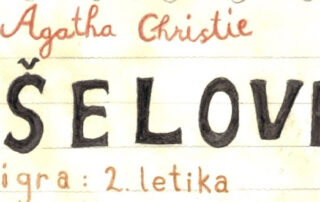 Agatha Christie
ŠELOV
igra: 2. letika